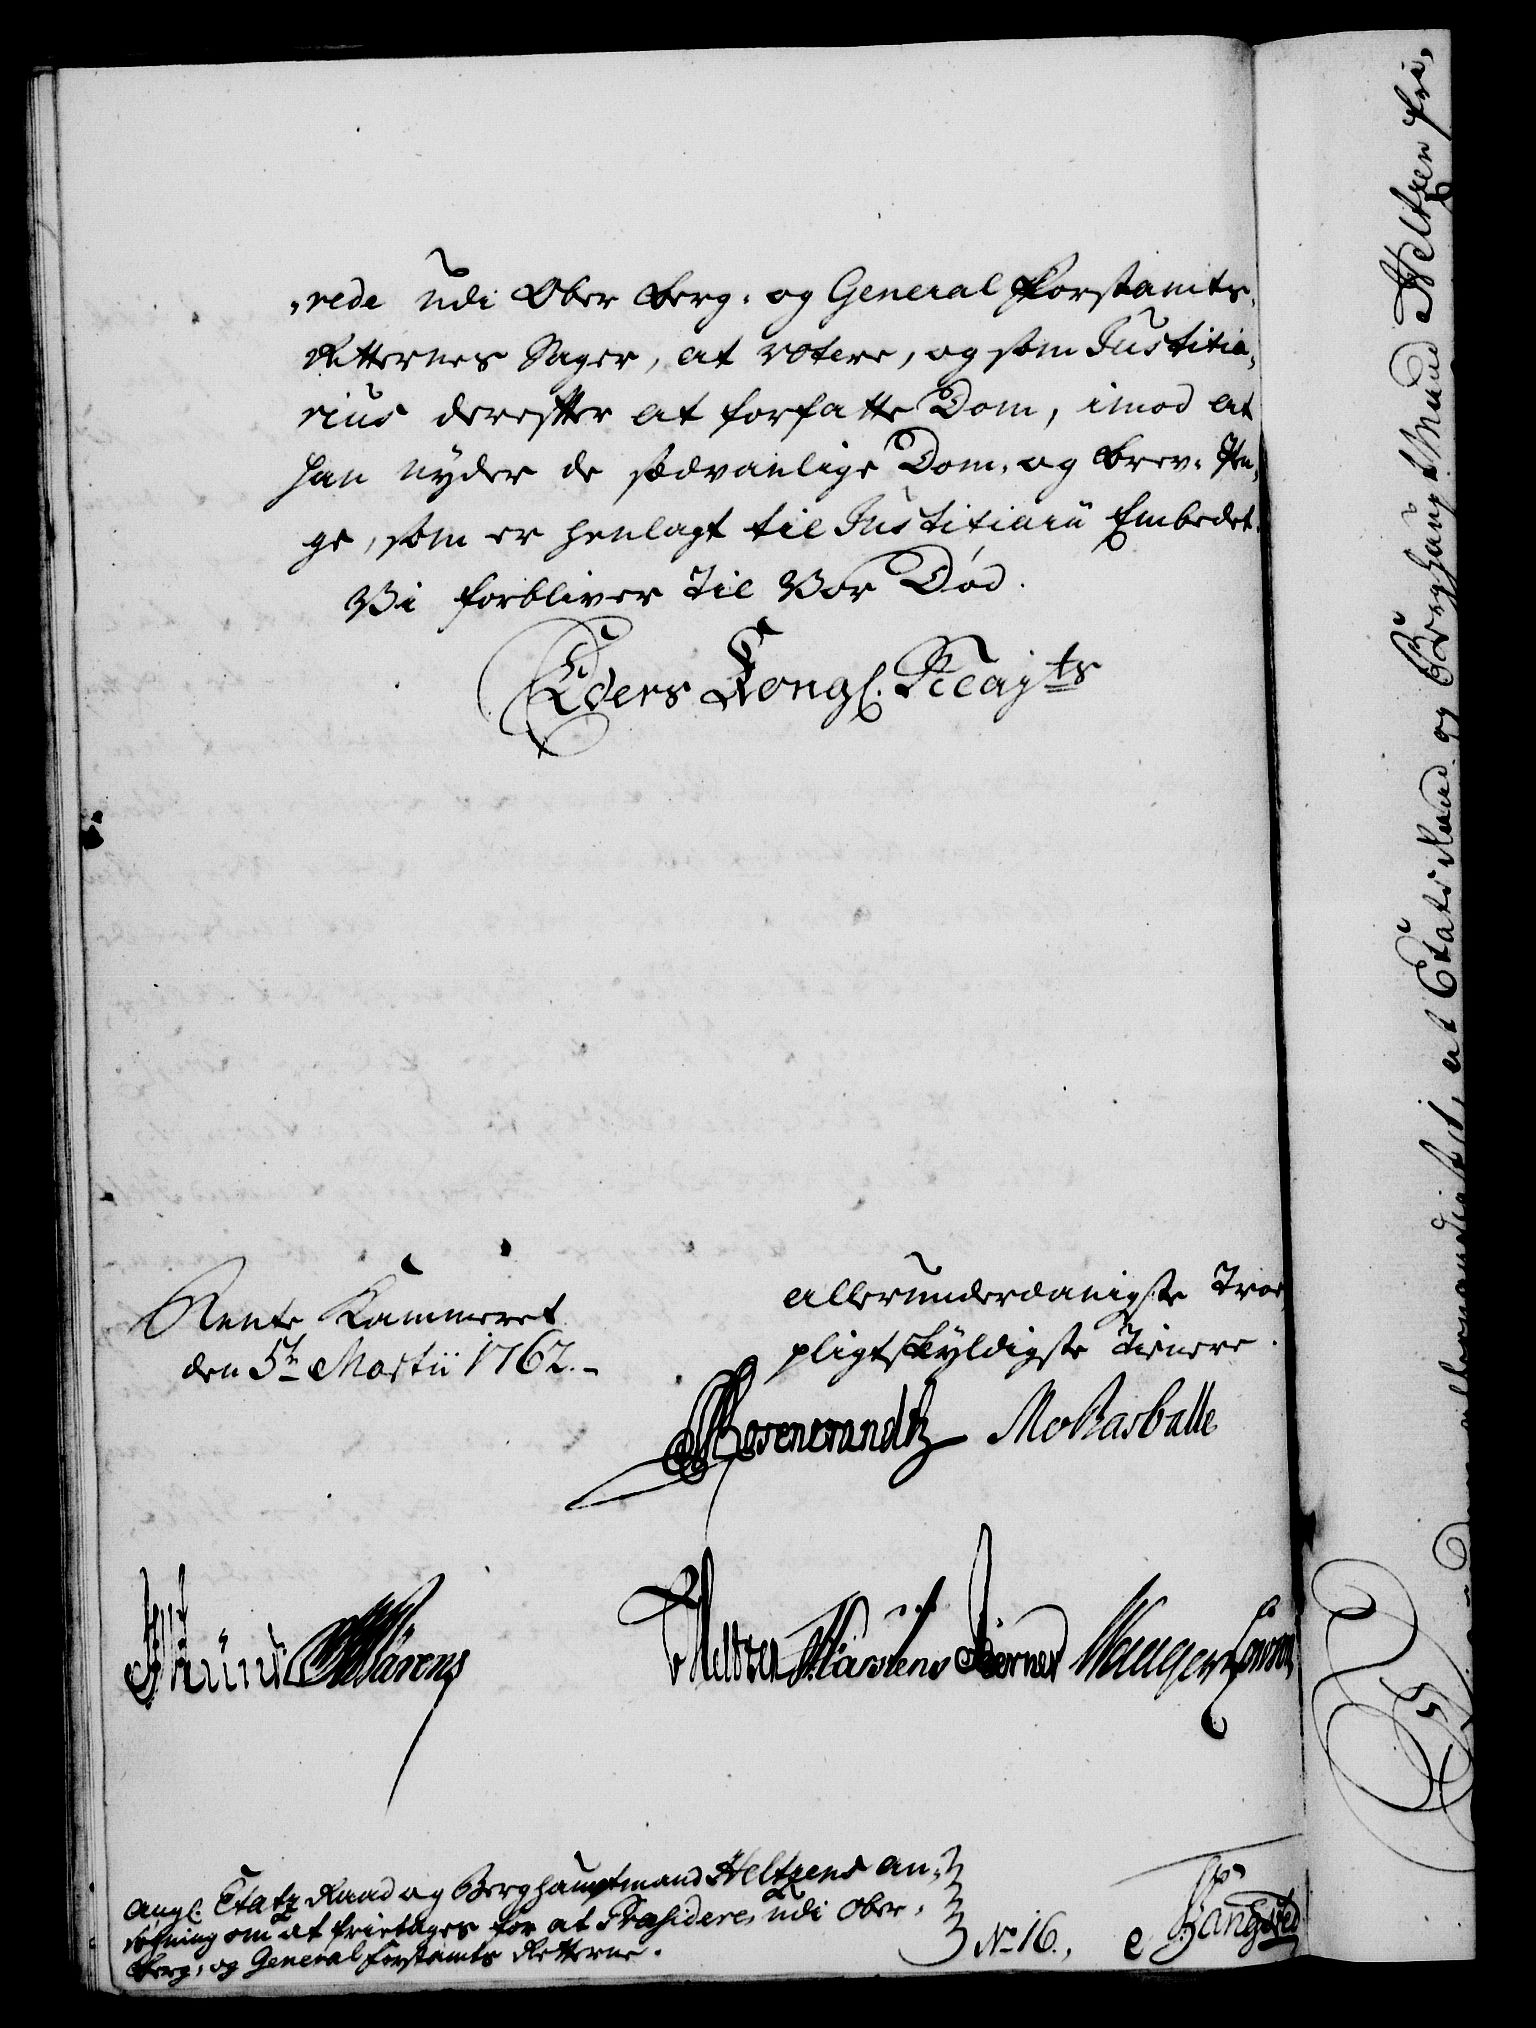 „rede udi Ober Berg- og General Forstamts-
Retternes Sager, at votere, og som Justitia-
rius derefter at forfatte Dom, imod at
han nyder de sædvanlige Dom- og Brev-Pen-
ge, som er henlagt til Justitiarii Embedet.
Vi forbliver til Vor Død.
Eders Kongl. Mayts
Rente Kammeret
den 5te Martii 1762.-
allerunderdanigste Troe
pligtskyldigste Tienere.
Rosencrandtz
Angl. Etatz Raad og Berghauptmand Heltzens an-
søgning om at frietages for at Præsidere udi Ober-
Berg- og General forstamts Retterne.
No. 16.,
at Etats Raad og Berghaupt Mand Heltzen fri,